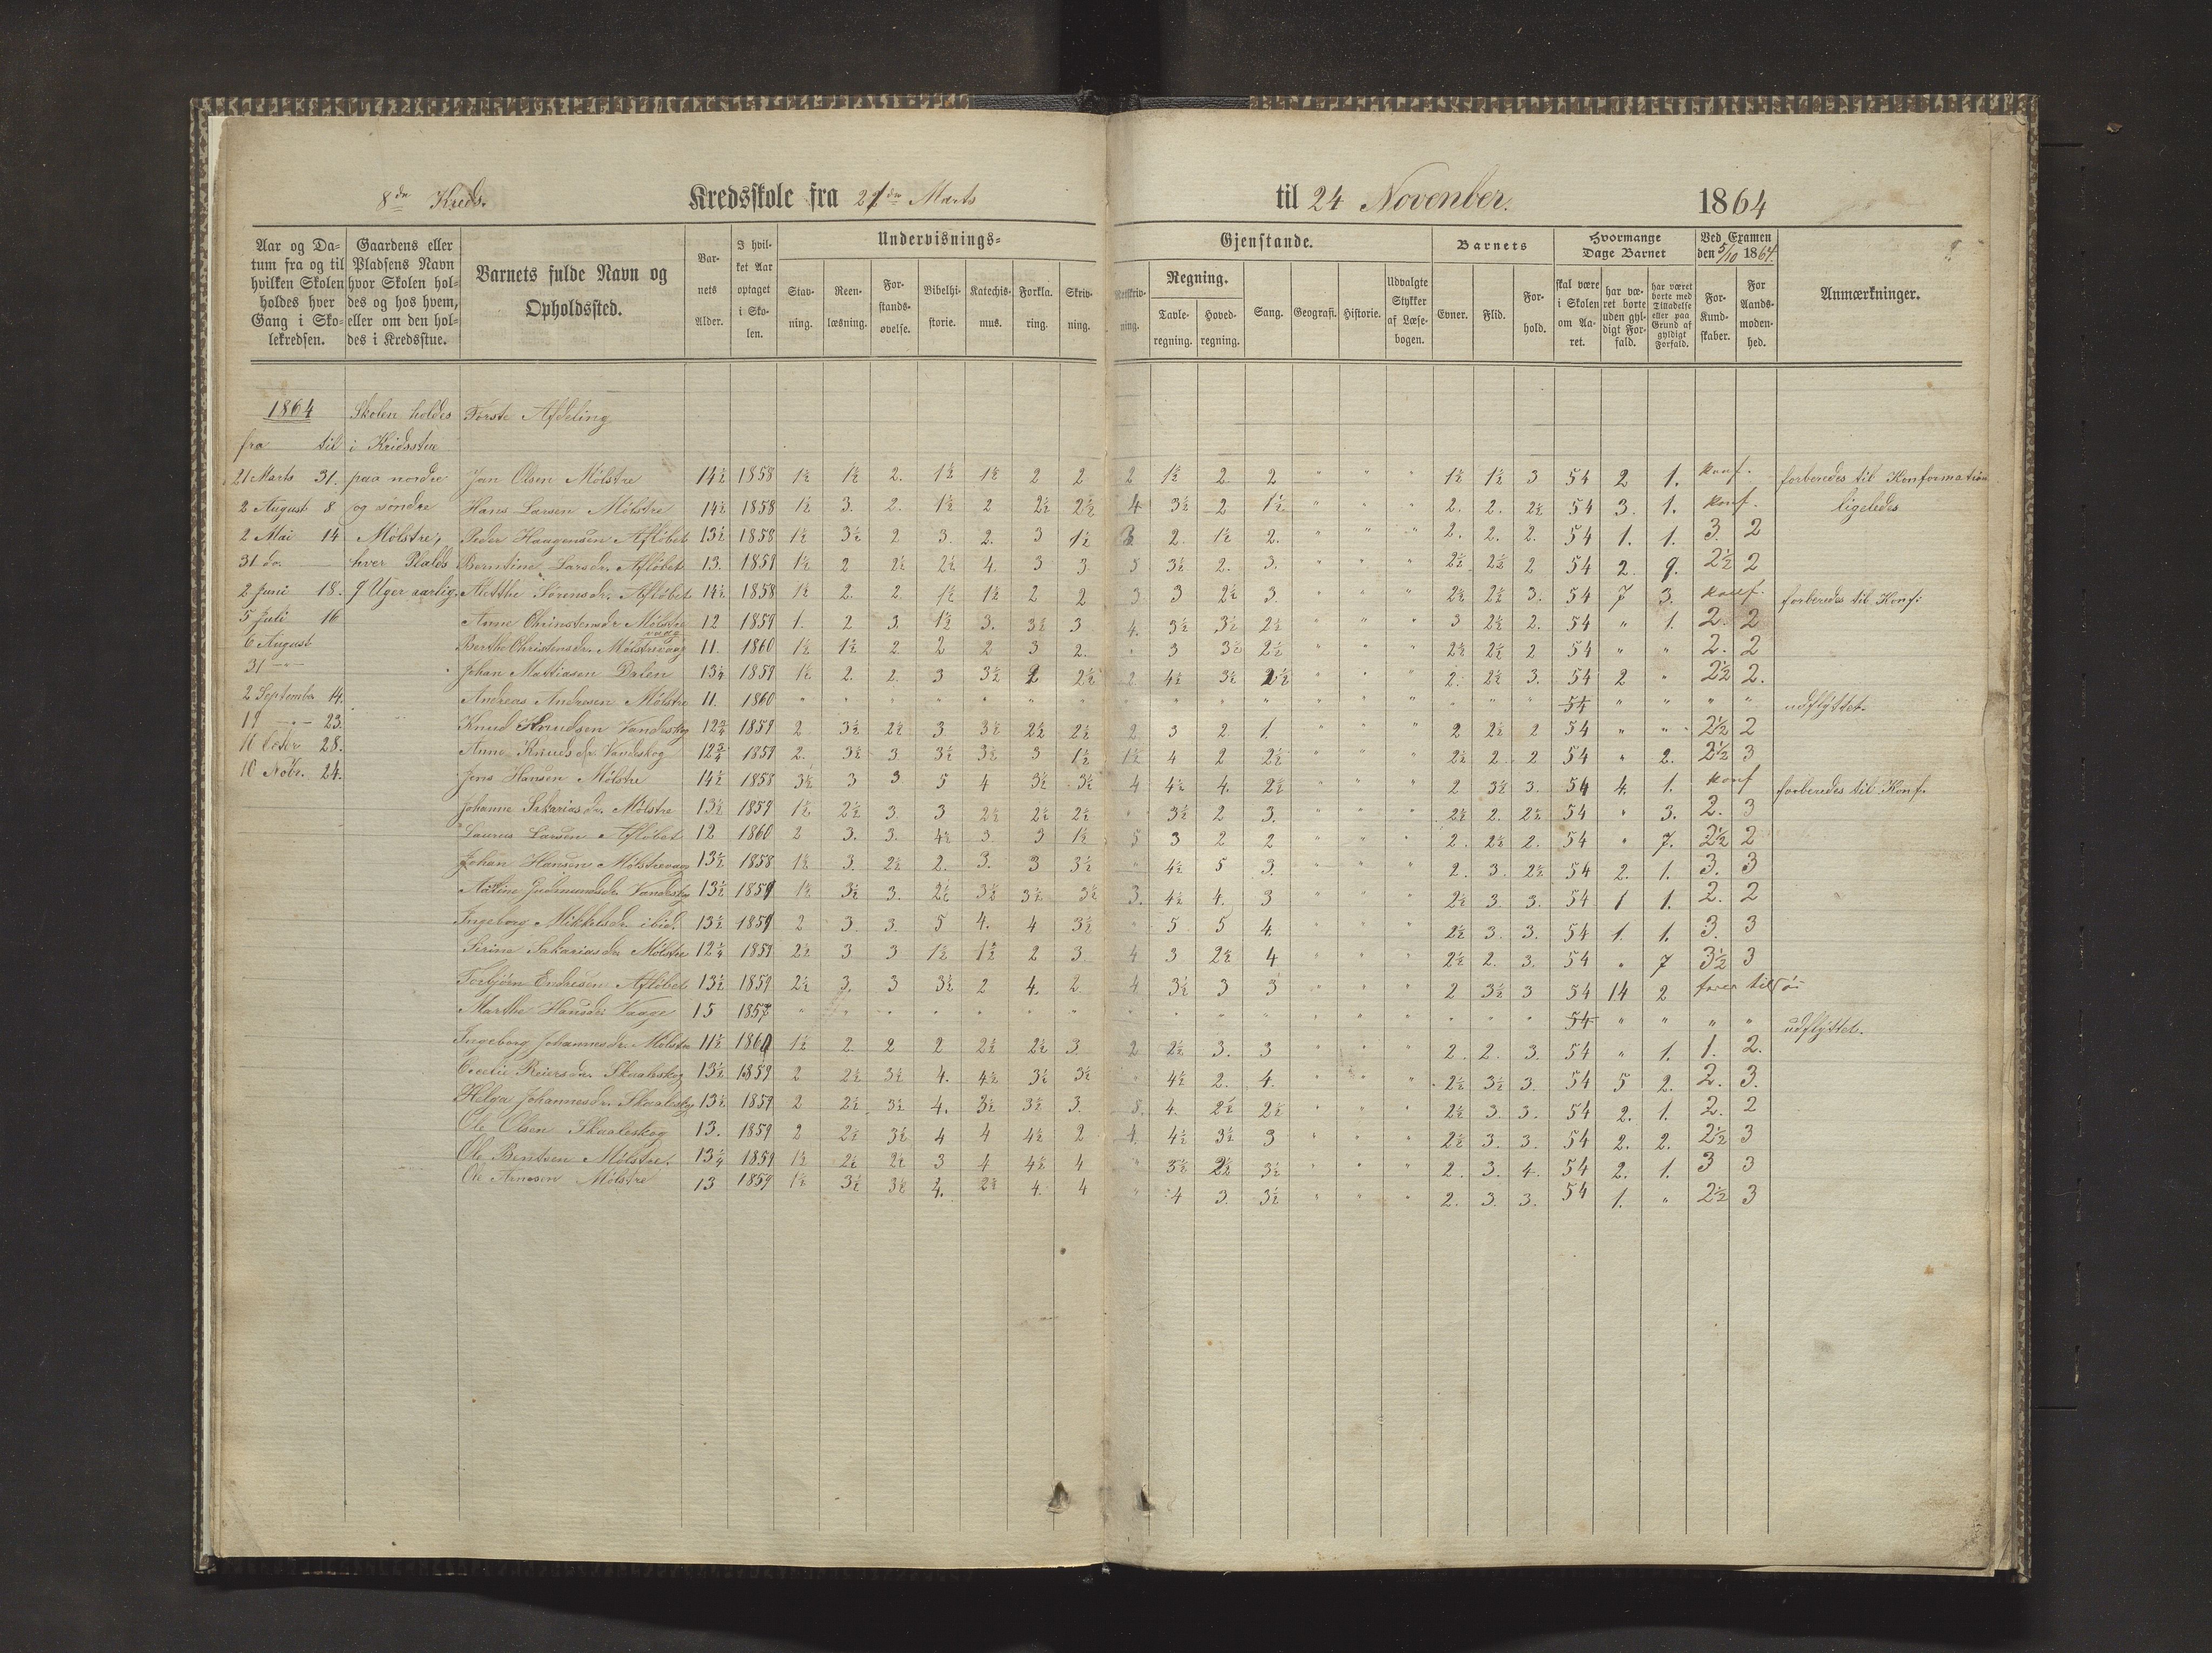 8de Kreds. Kredsskole fra 21de Marts til 24 November. 1864
Aar og Datum fra og til hvilken Skolen holdes hver Gang i Skolekredsen.
Gaardens eller Pladsens Navn hvor Skolen holdes og hos hvem, eller om den holdes i Kredsstue.
Barnets fulde Navn og Opholdssted.
Barnets Alder.
I hvilket Aar optaget i Skolen.
Undervisnings- Gjenstande.
Stavning. Reenlæsning. Forstandsøvelse. Bibelhistorie. Katechismus. Forklaring. Skrivning. Retskrivning. Regning. Tavleregning. Hovedregning. Sang. Geografi. Historie. Udvalgte Stykker af Læsebogen.
Barnets Evner. Flid. Forhold.
Hvormange Dage Barnet skal være i Skolen om Aaret. har været borte uden gyldigt Forfald. har været borte med Tilladelse eller paa Grund af gyldigt Forfald.
Ved Examen den 5/10 1864. For Kundskaber. For Aandsmodenhed.
Anmærkninger.
1864 Skolen holdes Første Afdeling
fra til i Kredsstue
21 Marts 31. paa nordre Jan Olsen Mølstre 14½ 1858 1½ 1½ 2. 1½ 1½ 2 2 2 1½ 2 2 " " " 1½ 1½ 3 54 2 1. konf. forberedes til Konformation
2 August 8 og søndre Hans Larsen Mølstre 14½ 1858 1½ 3. 2. 1½ 2 2½ 2½ 4 3½ 2 1½ " " " 2. 2. 2½ 54 3. 1. konf. ligeledes
2 Mai 14 Mølstre, Peder Haagensen Afløbet 13½ 1858 1½ 3½ 2 3 2. 3 1½ 3 2. 1½ 2. " " " 2. 2. 2. 54 1. 1. 3. 2
31 do. hver Plads Berntine Larsdr. Afløbet 13. 1859 1½ 2 2½ 2½ 4. 3 3 5 3½ 2. 3. " " " 2½ 2½ 2 54 2. 9. 2½ 2
2 Juni 18. 9 Uger aarlig. Metthe Sørensdr. Afløbet 14½ 1858 1½ 2. 2. 1½ 1½ 2 2 3 3 2½ 3. " " " 2½ 2½ 3. 54 7 3. konf. forberedes til Konf:
5 Juli 16 Anne Christensdr Mølstrevaag 12 1859 1. 2 3. 1½ 3. 3½ 3 4. 3½ 3½ 2½ " " " 3 2½ 2. 54 " 1. 2. 2
6 August Berthe Christensdr. Mølstrevaag 11. 1860 1½ 1½ 2 2 2 3 2. " 3 3½ 2½ " " " 2½ 2½ 2 54 " " 2. 2
31 — Johan Mattiasen Dalen 13¼ 1859 1½ 2. 2. 3 3½ 2 2½ 2 4½ 3½ 2½ " " " 2. 2½ 3. 54 2 " 2½ 2.
2 September 14. Andreas Andresen Mølstre 11. 1860 " " " " " " " " " " " " " " " " " 54 " " " " udflyttet.
19 — 23. Knud Knudsen Vandeskog 12¾ 1859 2. 3½ 2½ 3 3½ 2½ 2½ 2 3 2. 1. " " " 2 2½ 2 54 " " 2½ 2
11 Octbr 28. Anne Knudsdr. Vandeskog 12¾ 1859 2. 3½ 3 3½ 3½ 3 1½ 1½ 4 2 2½ " " " 2½ 2 2 54 " 2. 2½ 3
10 Nobr. 24. Jens Hansen Mølstre 14½ 1858 3½ 3 3 5 4 3½ 3½ 4 4½ 4. 2½ " " " 2 3½ 3. 54 4. 1. konf forberedes til Konf.
Johanne Sakariasdr. Mølstre 13½ 1859 1½ 2½ 3. 3 2½ 2½ 2½ " 3½ 2 3. " " " 2½ 2. 2½ 54 " 3. 2. 3
Laurus Larsen Afløbet 12 1860 2 3. 3. 4½ 3. 3 1½ 5 3 2 2 " " " 2. 2½ 2. 54 " 7. 2½ 2
Johan Hansen Mølstrevaag 13½ 1858 1½ 3. 2½ 2. 3. 3 3½ " 4½ 5 3. " " " 2. 3. 2½ 54 2. 1. 3. 3
Gudmundsdr. Vandeskog 13½ 1859 1½ 3½ 3. 2½ 3½ 3½ 3½ 3. 4½ 4. 3 " " " 2½ 3. 3. 54 1 1. 2. 2
Ingeborg Mikkelsdr. ibid. 13½ 1859 2 3. 3. 5 4. 4 3½ " 5 5 4. " " " 2½ 3. 3. 54 1. 1. 3. 3
Serine Sakariasdr Mølstre 12¼ 1859 2½ 3 3 1½ 1½ 2 3. 4 3 2½ 4 " " " 2½ 2. 3. 54 " 7 3½ 3
Torbjørn Endresen Afløbet 13½ 1859 2½ 3. 3 3½ 2 4. 2 4 3½ 3 3 " " " 2 3½ 3 54 14 2
Marthe Hansdr Vaage 15 1857 " " " " " " " " " " " " " " " " " 54 " " " " udflyttet.
Ingeborg Johannesdr. Mølstre 11½ 1860 1½ 2. 2 2 2½ 2½ 3. 2 2½ 3. 3 " " " 2. 2. 3. 54 " 1. 1. 2.
Cecilie Reiersdr. Skaaleskog 13½ 1859 2 2½ 3½ 4. 4½ 3½ 3½ " 4½ 2. 4. " " " 2½ 3½ 3. 54 5 2. 2. 3.
Helga Johannesdr. Skaaleskog 13½ 1859 2 2½ 3½ 4. 3½ 3½ 3. 8. 4. 2½ 2½ " " " 2½ 3. 3. 54 2. 1. 2. 2
Ole Olsen Skaaleskog 13. 1859 2 2½ 3½ 4 4 4½ 2 4. 4½ 3½ 3 " " " 2½ 3. 3. 54 2. 2. 2½ 3
Ole Bentsen Mølstre. 13¼ 1859 1½ 2½ 2½ 3 4 4½ 4 " 3½ 2½ 3½ " " " 2. 3. 4. 54 2. 1. 3 3
Ole Arnesen Mølstre 13 1859 1½ 3½ 3½ 4. 2½ 4. 4 " 4 3. 3½ " " " 2. 3. 3. 54 1. " 2½ 3